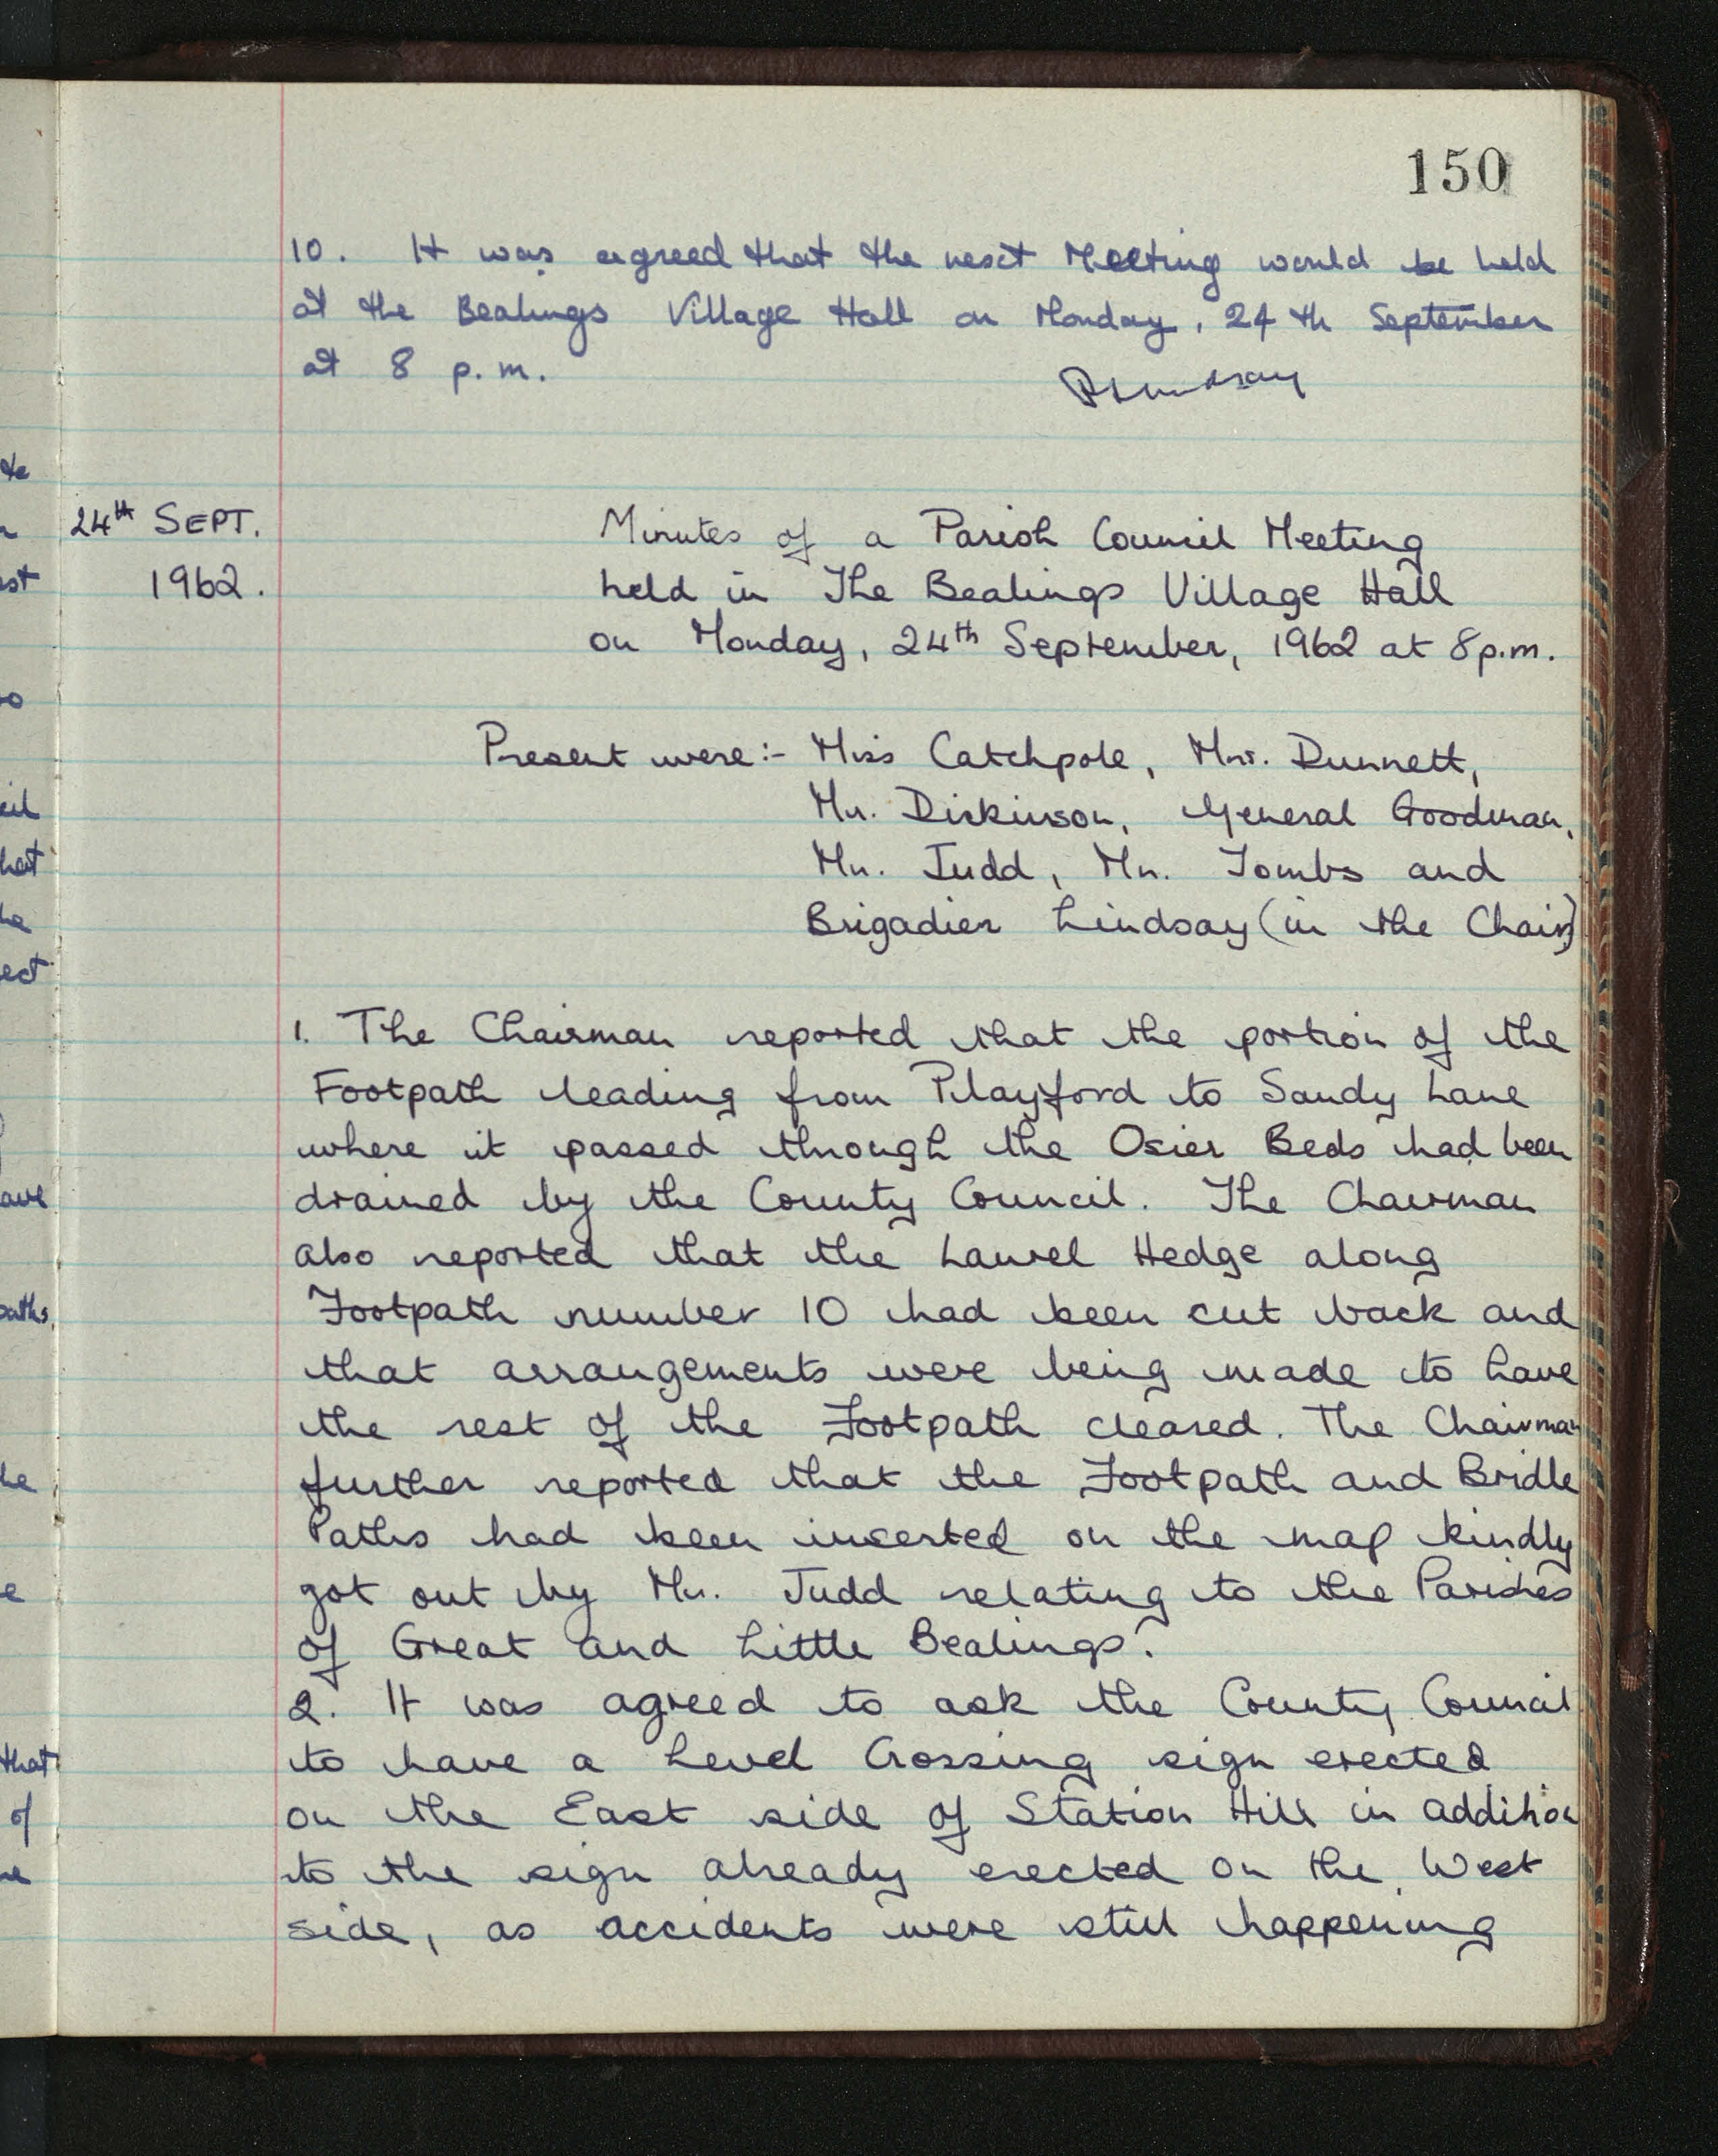 150
10. It was agreed that the next Meeting would be held
at the Bealings Village Hall on Monday, 24th September
at 8 p.m.
24th SEPT.
1962.
Minutes of a Parish Council Meeting
held in The Bealings Village Hall
on Monday, 24th September, 1962 at 8p.m.
Present were:- Miss Catchpole, Mr. Dunnett,
Mr. Dickinson, General Goodman,
Mr. Judd, Mr. Tombs and
Brigadier Lindsay (in the Chair)
1. The Chairman reported that the portion of the
Footpath leading from Playford to Sandy Lane
where it passed through the Osier Beds had been
drained by the County Council. The Chairman
also reported that the Laurel Hedge along
Footpath number 10 had been cut back and
that arrangements were being made to have
the rest of the Footpath cleared. The Chairman
further reported that the Footpath and Bridle
Paths had been inserted on the map kindly
got out by Mr. Judd relating to the Parishes
of Great and Little Bealings.
2. It was agreed to ask the County Council
to have a Level Crossing sign erected
on the East side of Station Hill in addition
to the sign already erected on the West
side, as accidents were still happening